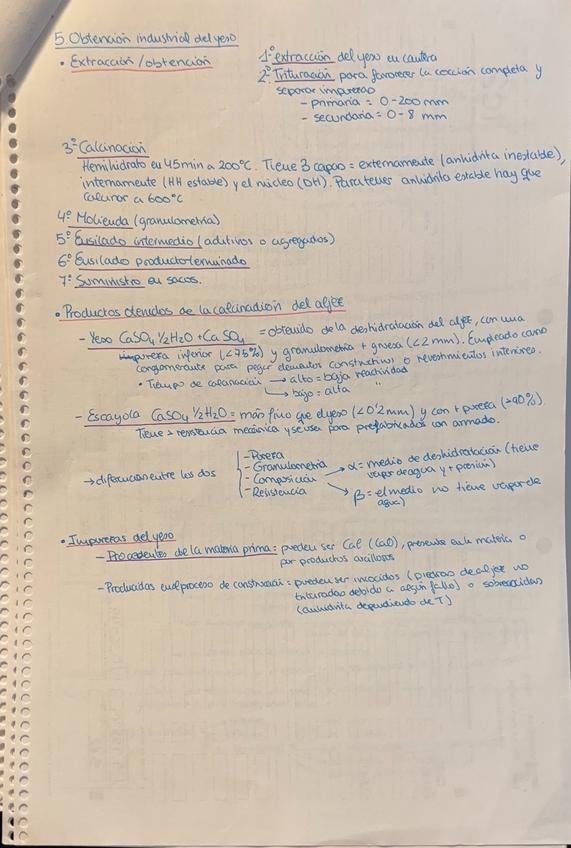 5. Obtención industrial del yeso
• Extracción/obtención
1º extracción del yeso en cantera
2º Trituración para favorecer la cocción completa y
separar impurezas
- primaria = 0-200 mm
- secundaria = 0-8 mm
3º Calcinación
Hemihidrato en 45min a 200ºC. Tiene 3 capas = externamente (anhidrita inestable),
internamente (HH estable) y el núcleo (DH). Para tener anhidrita estable hay que
calcinar a 600ºC
4º Molienda (granulometría)
5º Ensilado intermedio (aditivos o agregados)
6º Ensilado producto terminado
7º Suministro en sacos.
• Productos otenidos de la calcinadion del aljez
- Yeso CaSO4 ½H2O + CaSO4 = obtenido de la deshidratación del aljez, con una
impureza inferior (<75%) y granulometría + gruesa (<2mm). Empleado como
conglomerante para pegar elementos constructivos o revestimientos interiores.
• Tiempo de calcinación → alto = baja reactividad
→ bajo = alta "
- Escayola CaSO4 ½H2O = más fino que el yeso (<0'2mm) y con + pureza (>90%).
Tiene > resistencia mecánica y se usa para prefabricados con armado.
→ diferencian entre las dos
- Pureza
- Granulometría
- Composición
- Resistencia
→ α = medio de deshidratación (tiene
vapor de agua y + presión)
→ β = el medio no tiene vapor de
agua)
• Impurezas del yeso
- Procedentes de la materia prima = pueden ser Cal (CaO), presente en la materia o
por productos arcillosos
- Producidas en el proceso de construcción = pueden ser incocidos (piedras de aljez no
trituradas debido a algún fallo) o sobrecocidas
(anhidrita dependiendo de T)